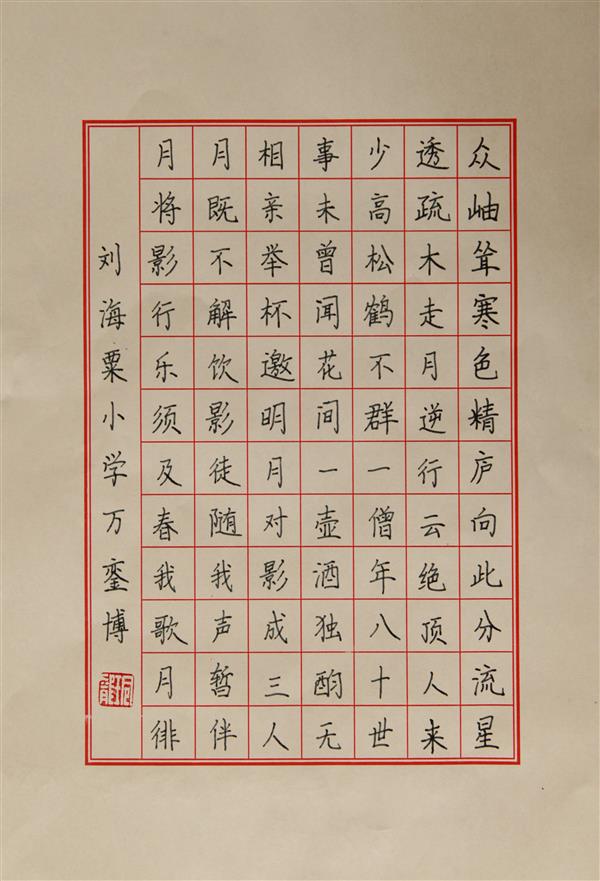 众岫耸寒色精庐向此分流星
透疏木走月逆行云绝顶人来
少高松鹤不群一僧年八十世
事未曾闻花间一壶酒独酌无
相亲举杯邀明月对影成三人
月既不解饮影徒随我声暂伴
月将影行乐须及春我歌月徘
刘海粟小学万銮博